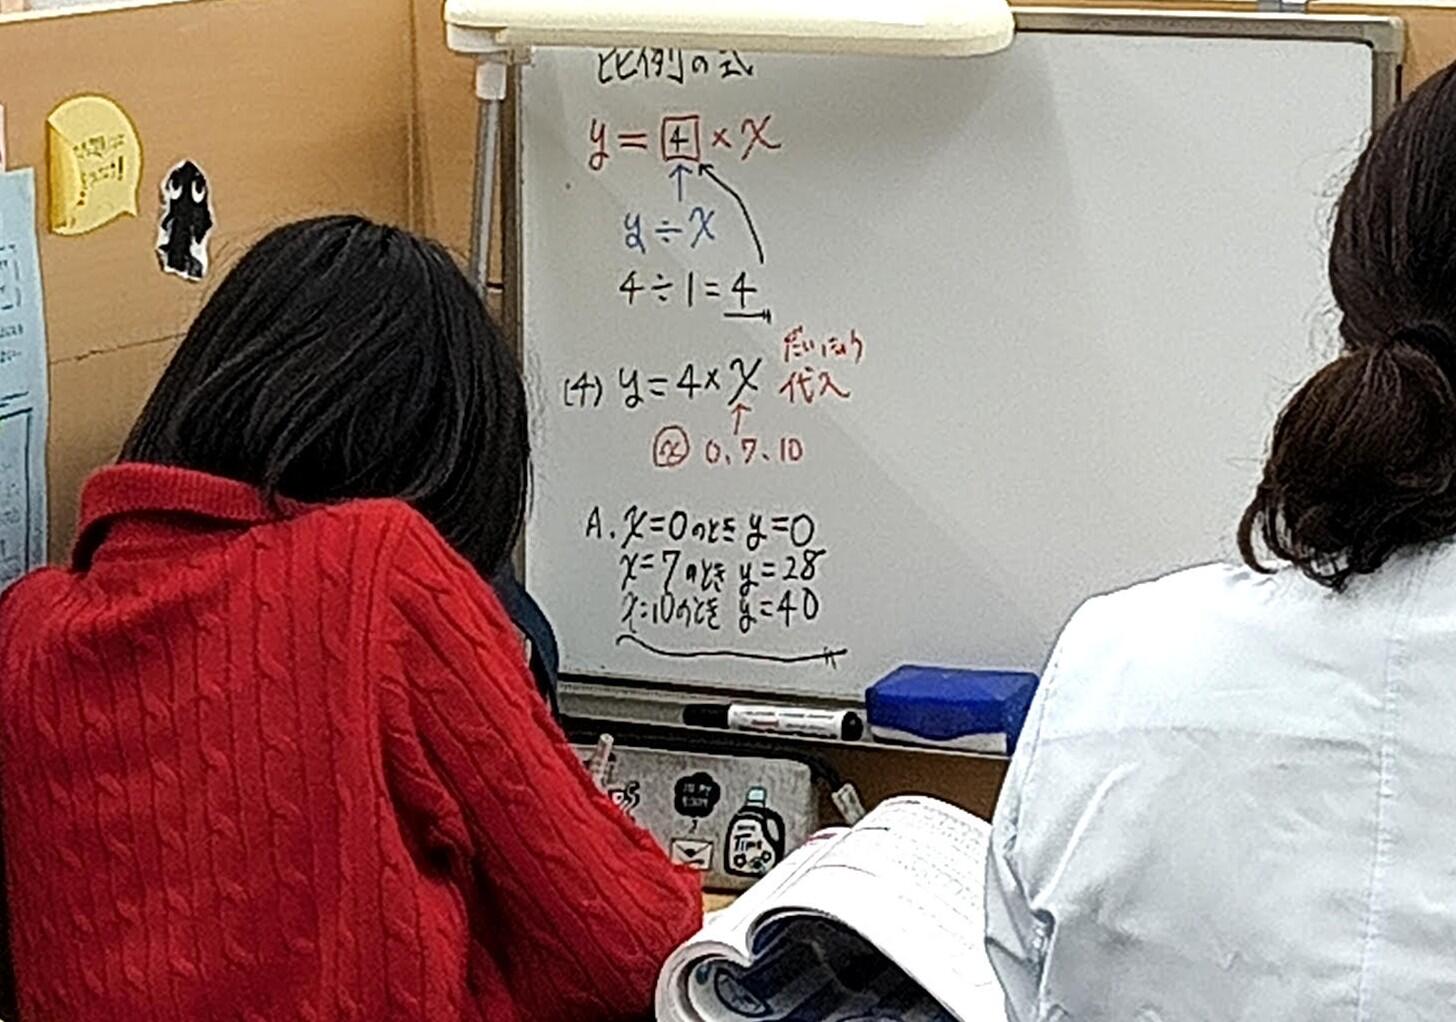 比例の式
y = 4 × x
y ÷ x
4 ÷ 1 = 4
だいにゅう
(4) y = 4 × x 代入
x 0、7、10
A. x=0のとき y=0
x=7のとき y=28
x=10のとき y=40
Time